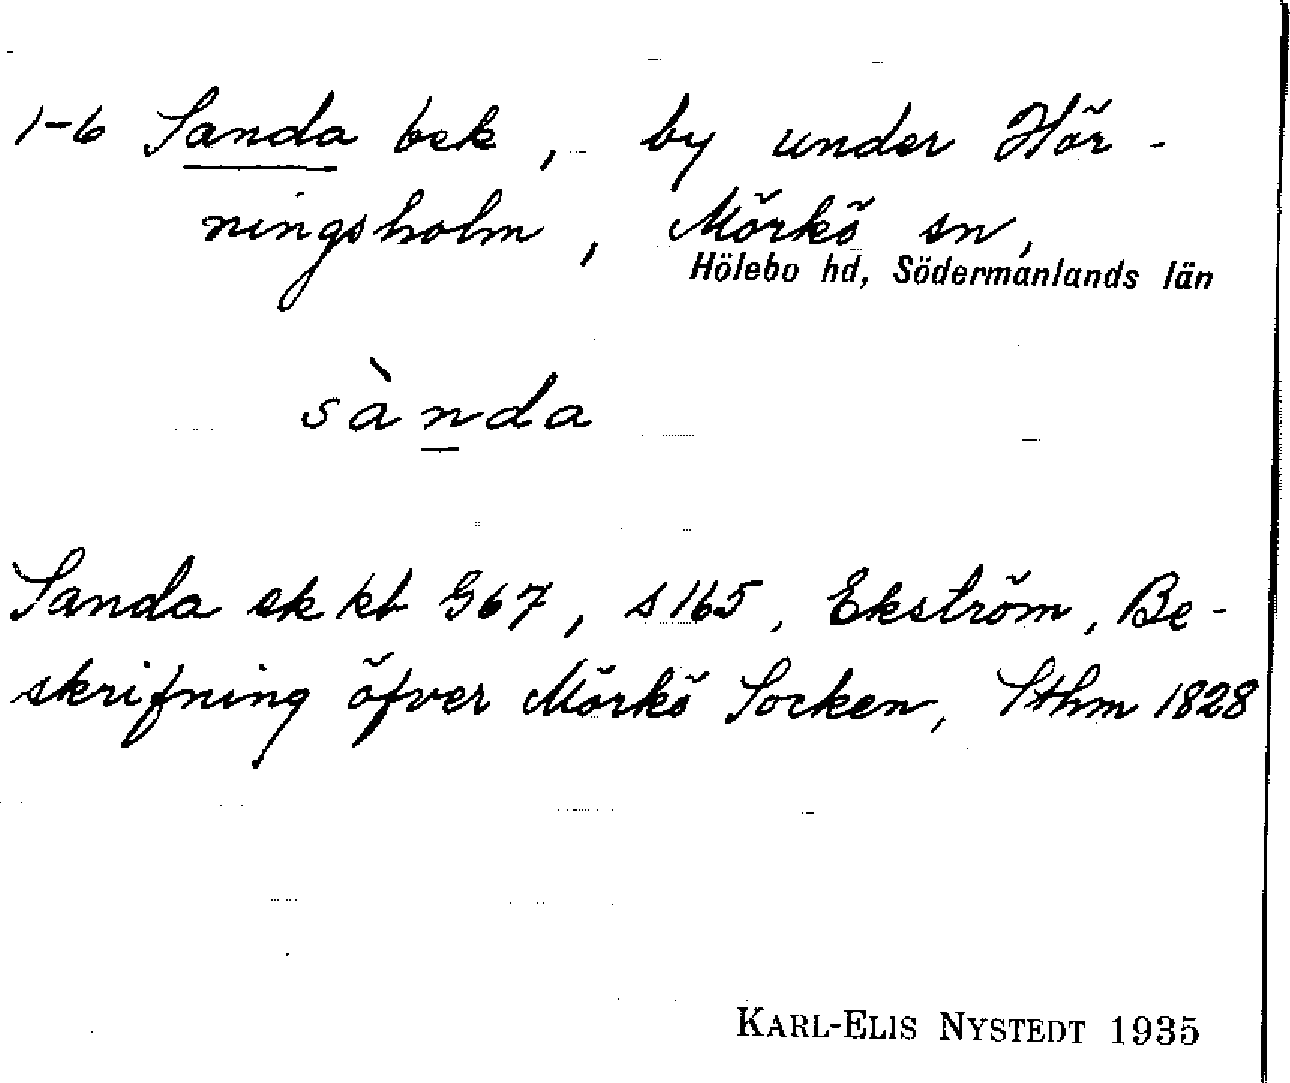 1-6 Sanda bek, by under Hör-
ningsholm, Mörkö sn,
Hölebo hd, Södermanlands län
sànda
Sanda ek kb G67, s 165, Ekström, Be-
skrifning öfver Mörkö Socken, Sthm 1828
KARL-ELIS NYSTEDT 1935